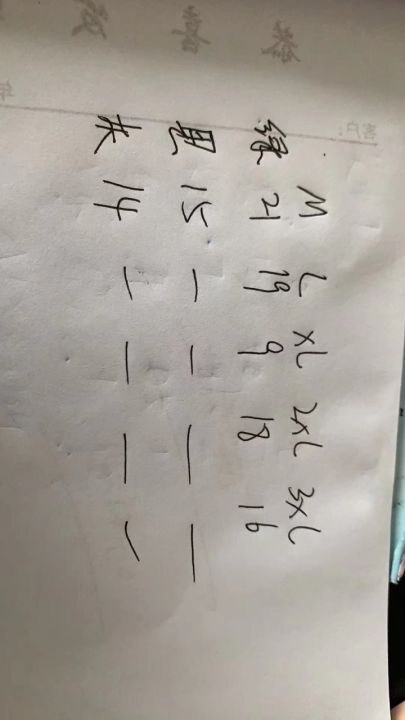 M L XL 2XL 3XL
绿 21 19 9 18 16
黑 15 — — — —
14 — — — —